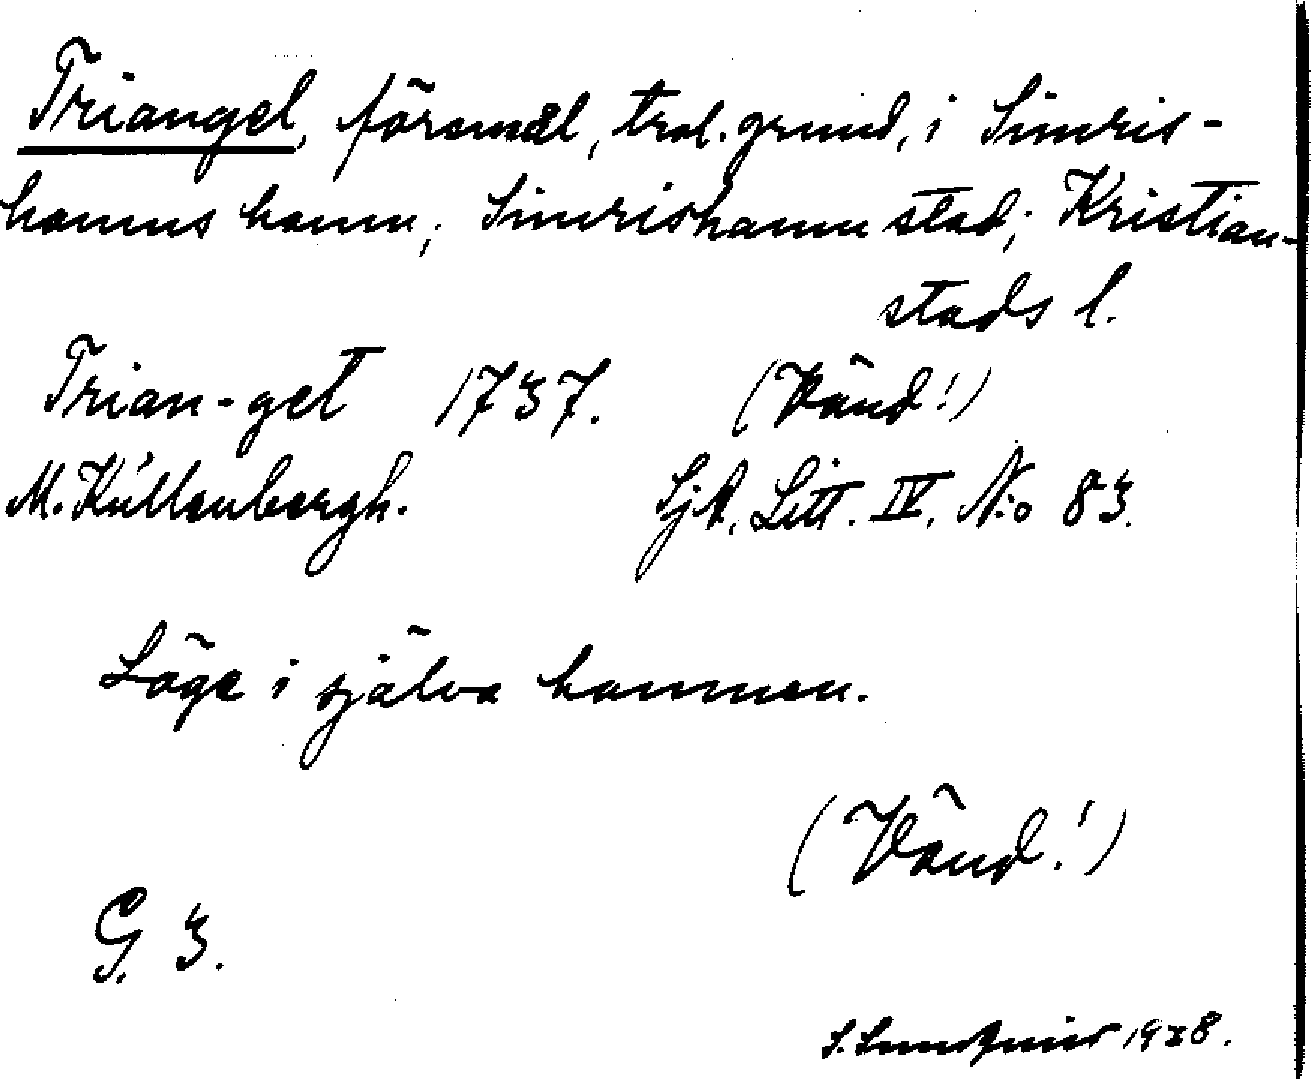 Triangel, föremål, trol. grund, i Simris-
hamns hamn; Simrishamn stad; Kristian-
stads l.
Trian-get 1737. (Vänd!)
M. Kúllenbergh. SjK. Litt. IV. N:o 83.
Läge i själva hamnen.
(Vänd!)
G. 3.
S. 1928.